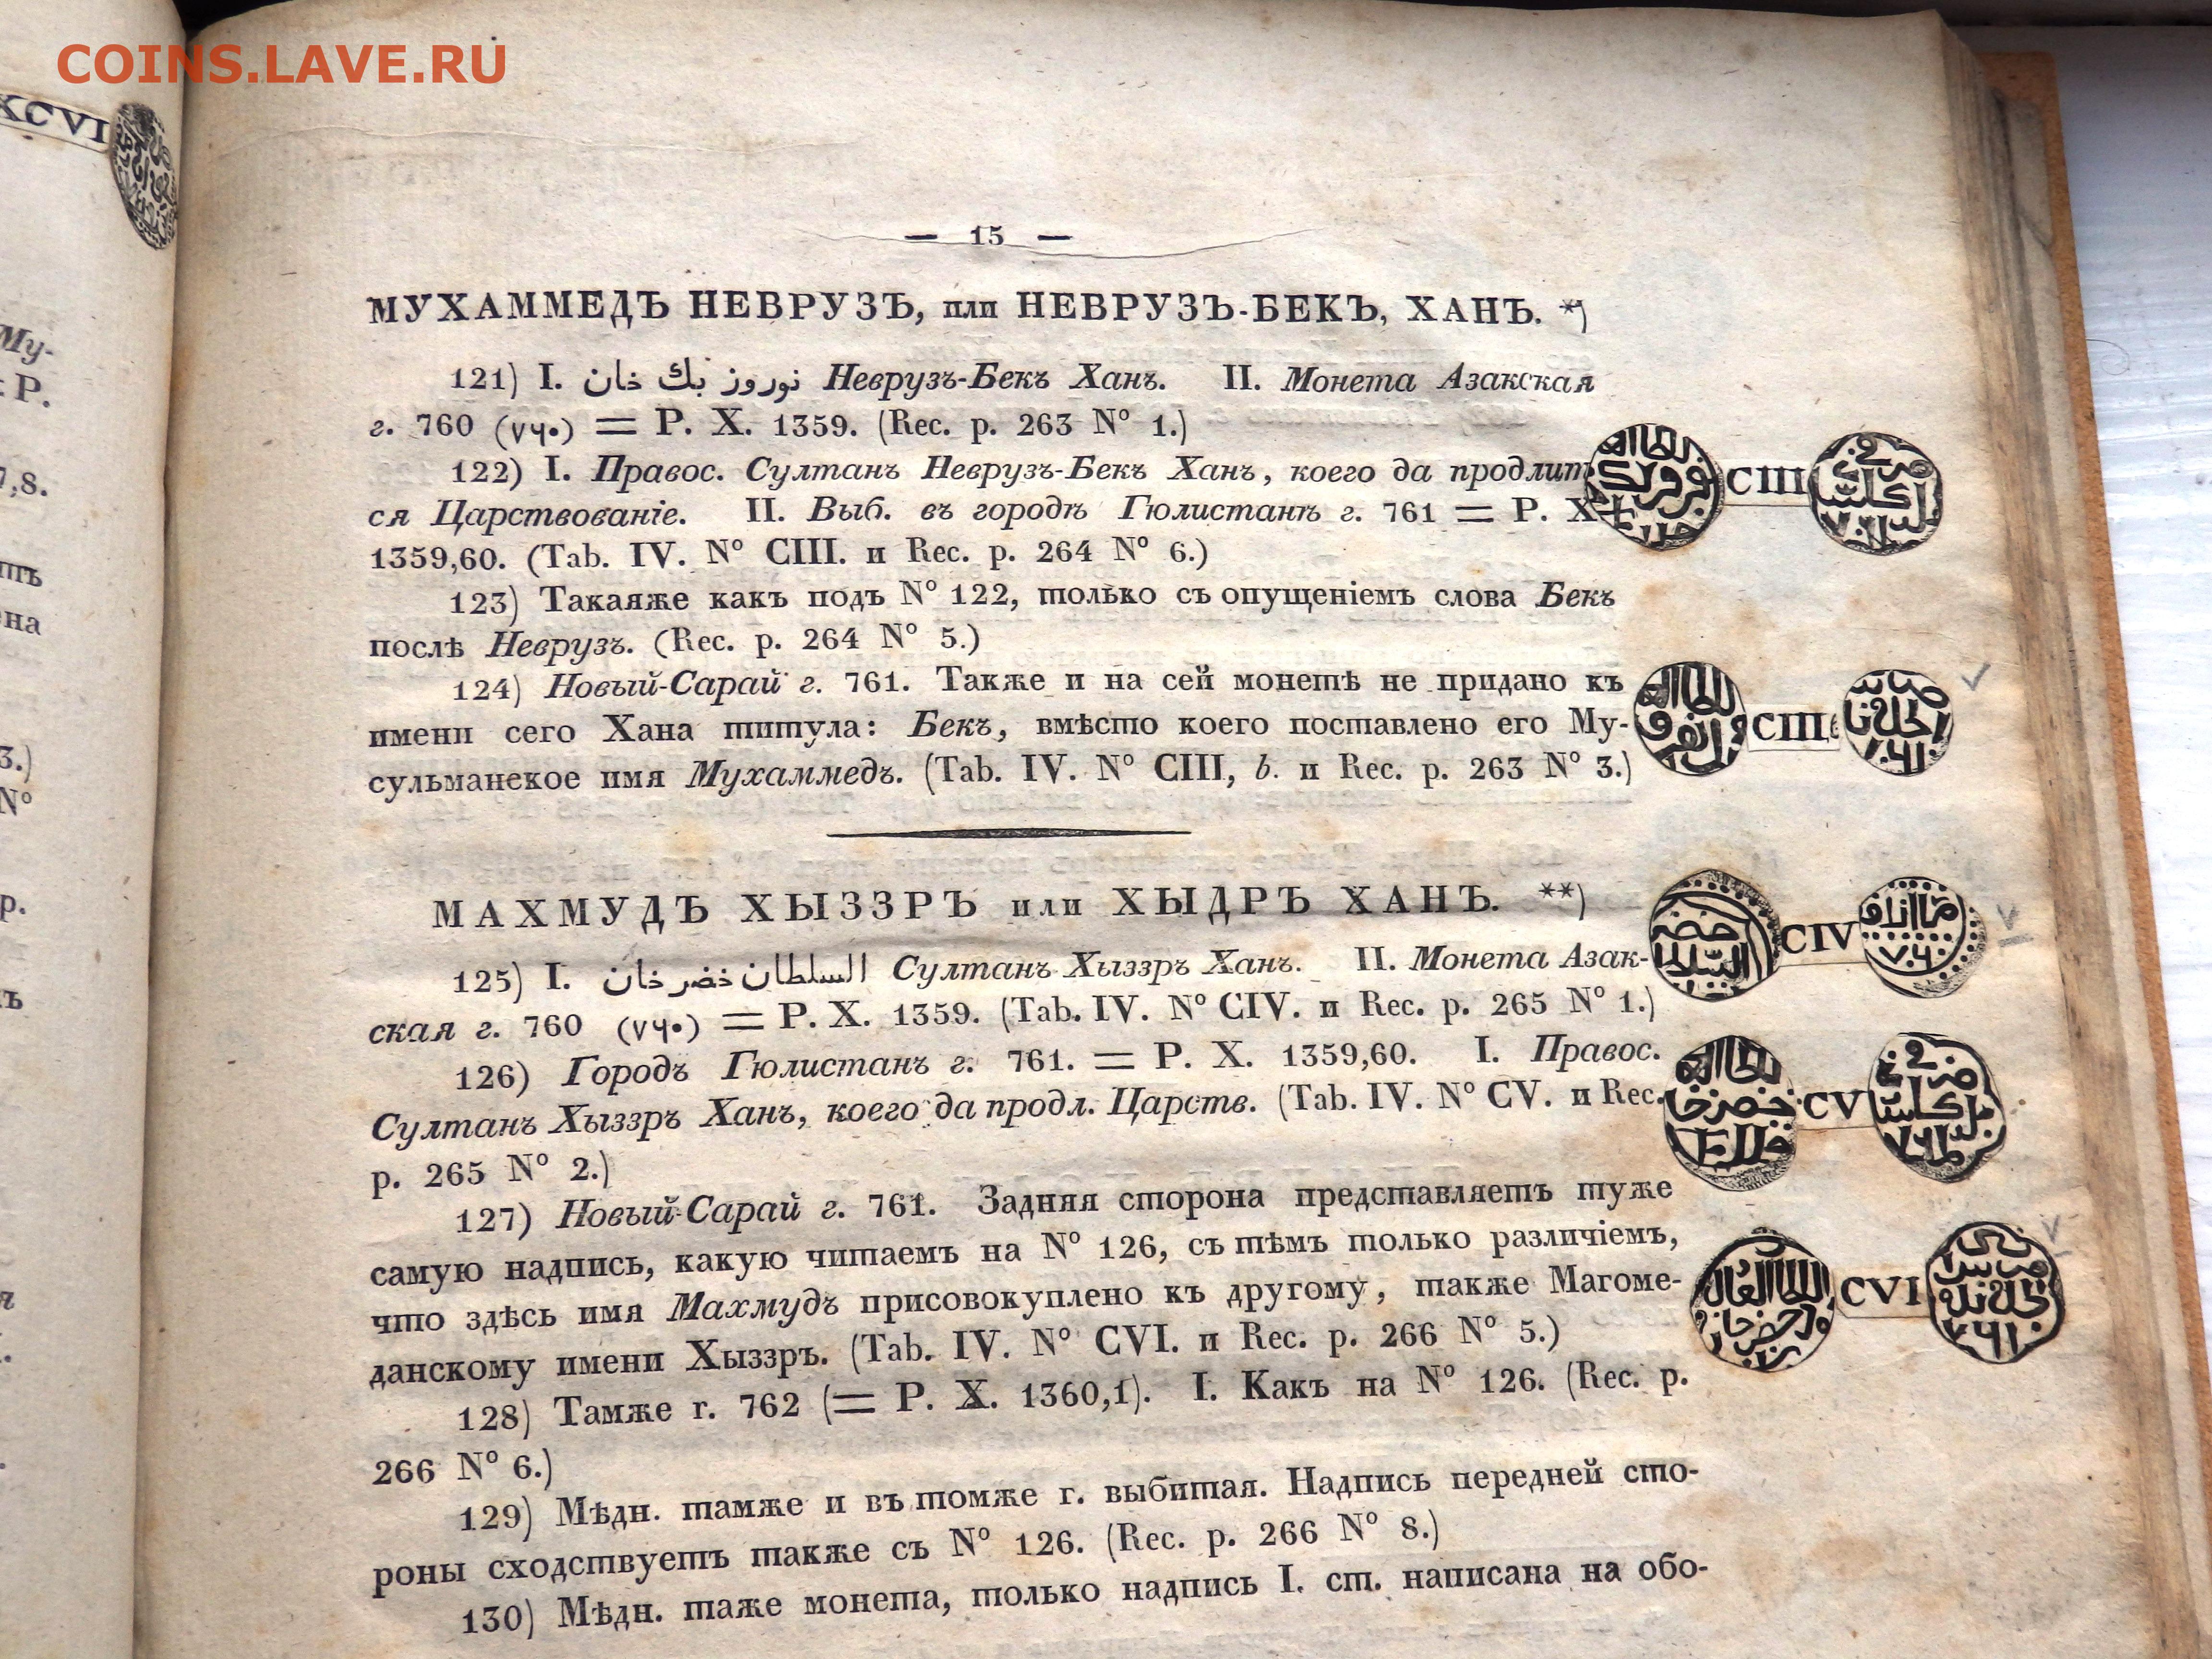 COINS.LAVE.RU
XCVI
Му-
Р.
7,8.
ть
на
3.)
N°
р.
ъ
— 15 —
МУХАММЕДЪ НЕВРУЗЪ, или НЕВРУЗЪ-БЕКЪ, ХАНЪ. *)
121) I. نوروز بك خان Неврузъ-Бекъ Ханъ. II. Монета Азакская
г. 760 (٧٩٠) = Р. Х. 1359. (Rec. p. 263 N° 1.)
122) I. Правос. Султанъ Неврузъ-Бекъ Ханъ, коего да продлит
ся Царствованіе. II. Выб. въ городѣ Гюлистанѣ г. 761 = Р. Х.
CIII
1359,60. (Tab. IV. N° CIII. и Rec. p. 264 N° 6.)
123) Такаяже какъ подъ N° 122, только съ опущеніемъ слова Бекъ
послѣ Неврузъ. (Rec. p. 264 N° 5.)
124) Новый-Сарай г. 761. Также и на сей монетѣ не придано къ
имени сего Хана титула: Бекъ, вмѣсто коего поставлено его Му-
CIII
сульманское имя Мухаммедъ. (Tab. IV. N° CIII, b. и Rec. p. 263 N° 3.)
МАХМУДЪ ХЫЗЗРЪ или ХЫДРЪ ХАНЪ. **)
CIV
125) I. السلطان خضر خان Султанъ Хыззръ Ханъ. II. Монета Азак-
ская г. 760 (٧٩٠) = Р. Х. 1359. (Tab. IV. N° CIV. и Rec. p. 265 N° 1.)
126) Городъ Гюлистанъ г. 761. = Р. Х. 1359,60. I. Правос.
Султанъ Хыззръ Ханъ, коего да продл. Царств. (Tab. IV. N° CV. и Rec.
CV
p. 265 N° 2.)
127) Новый-Сарай г. 761. Задняя сторона представляетъ туже
самую надпись, какую читаемъ на N° 126, съ тѣмъ только различіемъ,
что здѣсь имя Махмудъ присовокуплено къ другому, также Магоме-
CVI
данскому имени Хыззръ. (Tab. IV. N° CVI. и Rec. p. 266 N° 5.)
128) Тамже г. 762 (= Р. Х. 1360,1). I. Какъ на N° 126. (Rec. p.
266 N° 6.)
129) Мѣдн. тамже и въ томже г. выбитая. Надпись передней сто-
роны сходствуетъ также съ N° 126. (Rec. p. 266 N° 8.)
130) Мѣдн. таже монета, только надпись I. ст. написана на обо-